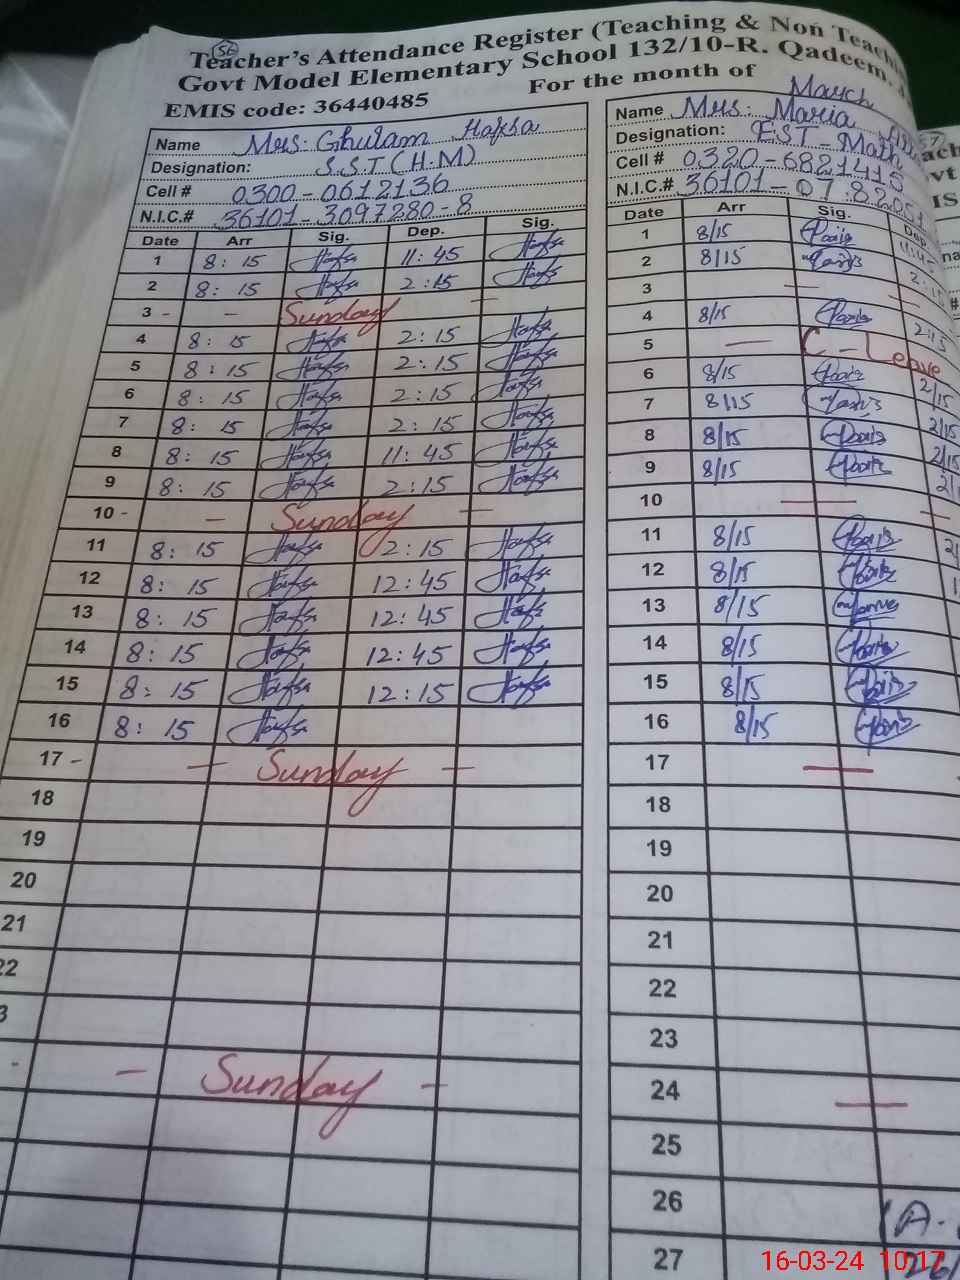 56
Teacher's Attendance Register (Teaching & Non Teach
Govt Model Elementary School 132/10-R. Qadeem.
EMIS code: 36440485
For the month of March
Name Mrs: Ghulam Hafsa
Designation: S.S.T (H.M)
Cell # 0300-0612136
N.I.C.# 36101-3097280-8
Date Arr Sig. Dep. Sig.
1 8: 15 Hafsa 11: 45 Hafsa
2 8: 15 Hafsa 2:15 Hafsa
3 - - Sunday -
4 8: 15 Hafsa 2:15 Hafsa
5 8: 15 Hafsa 2:15 Hafsa
6 8: 15 Hafsa 2:15 Hafsa
7 8: 15 Hafsa 2: 15 Hafsa
8 8: 15 Hafsa 11: 45 Hafsa
9 8: 15 Hafsa 2:15 Hafsa
10 - - Sunday -
11 8: 15 Hafsa 2:15 Hafsa
12 8: 15 Hafsa 12:45 Hafsa
13 8: 15 Hafsa 12:45 Hafsa
14 8: 15 Hafsa 12:45 Hafsa
15 8: 15 Hafsa 12:15 Hafsa
16 8: 15 Hafsa
17 - - Sunday -
18
19
20
21
22
3
- - Sunday -
Name Mrs: Maria
Designation: EST - Math
Cell # 0320-6821415
N.I.C.# 36101-07
Date Arr Sig. Dep.
1 8/15 11:45
2 8/15 2:15
3 - -
4 8/15 2:15
5 - C - Leave
6 8/15 2/15
7 8/15 2/15
8 8/15 2/15
9 8/15
10 - -
11 8/15
12 8/15
13 8/15
14 8/15
15 8/15
16 8/15
17 -
18
19
20
21
22
23
24 -
25
26
27
57
16-03-24 10:17